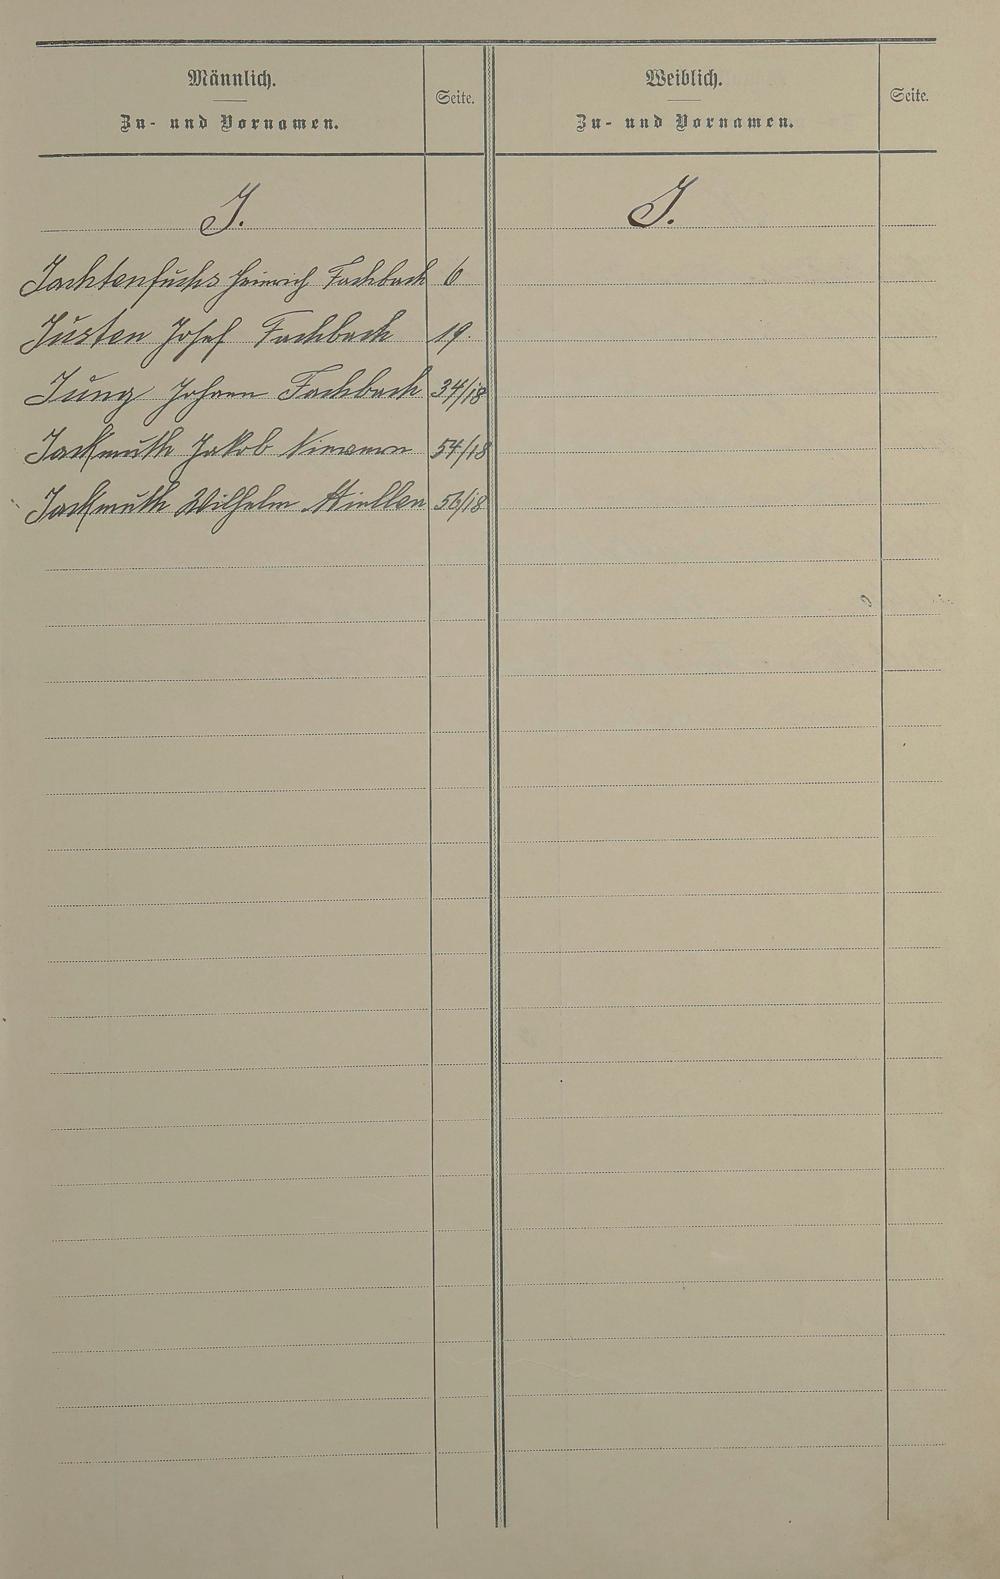 Männlich.
Zu- und Vornamen.
Seite.
Weiblich.
Zu- und Vornamen.
Seite.
J.
J.
Jachtenfuchs Heinrich Fachbach 6
Justen Josef Fachbach 19.
Jung Johann Fachbach 34/18
Jackmuth Jakob Nievern 54/18
Jackmuth Wilhelm Miellen 56/18